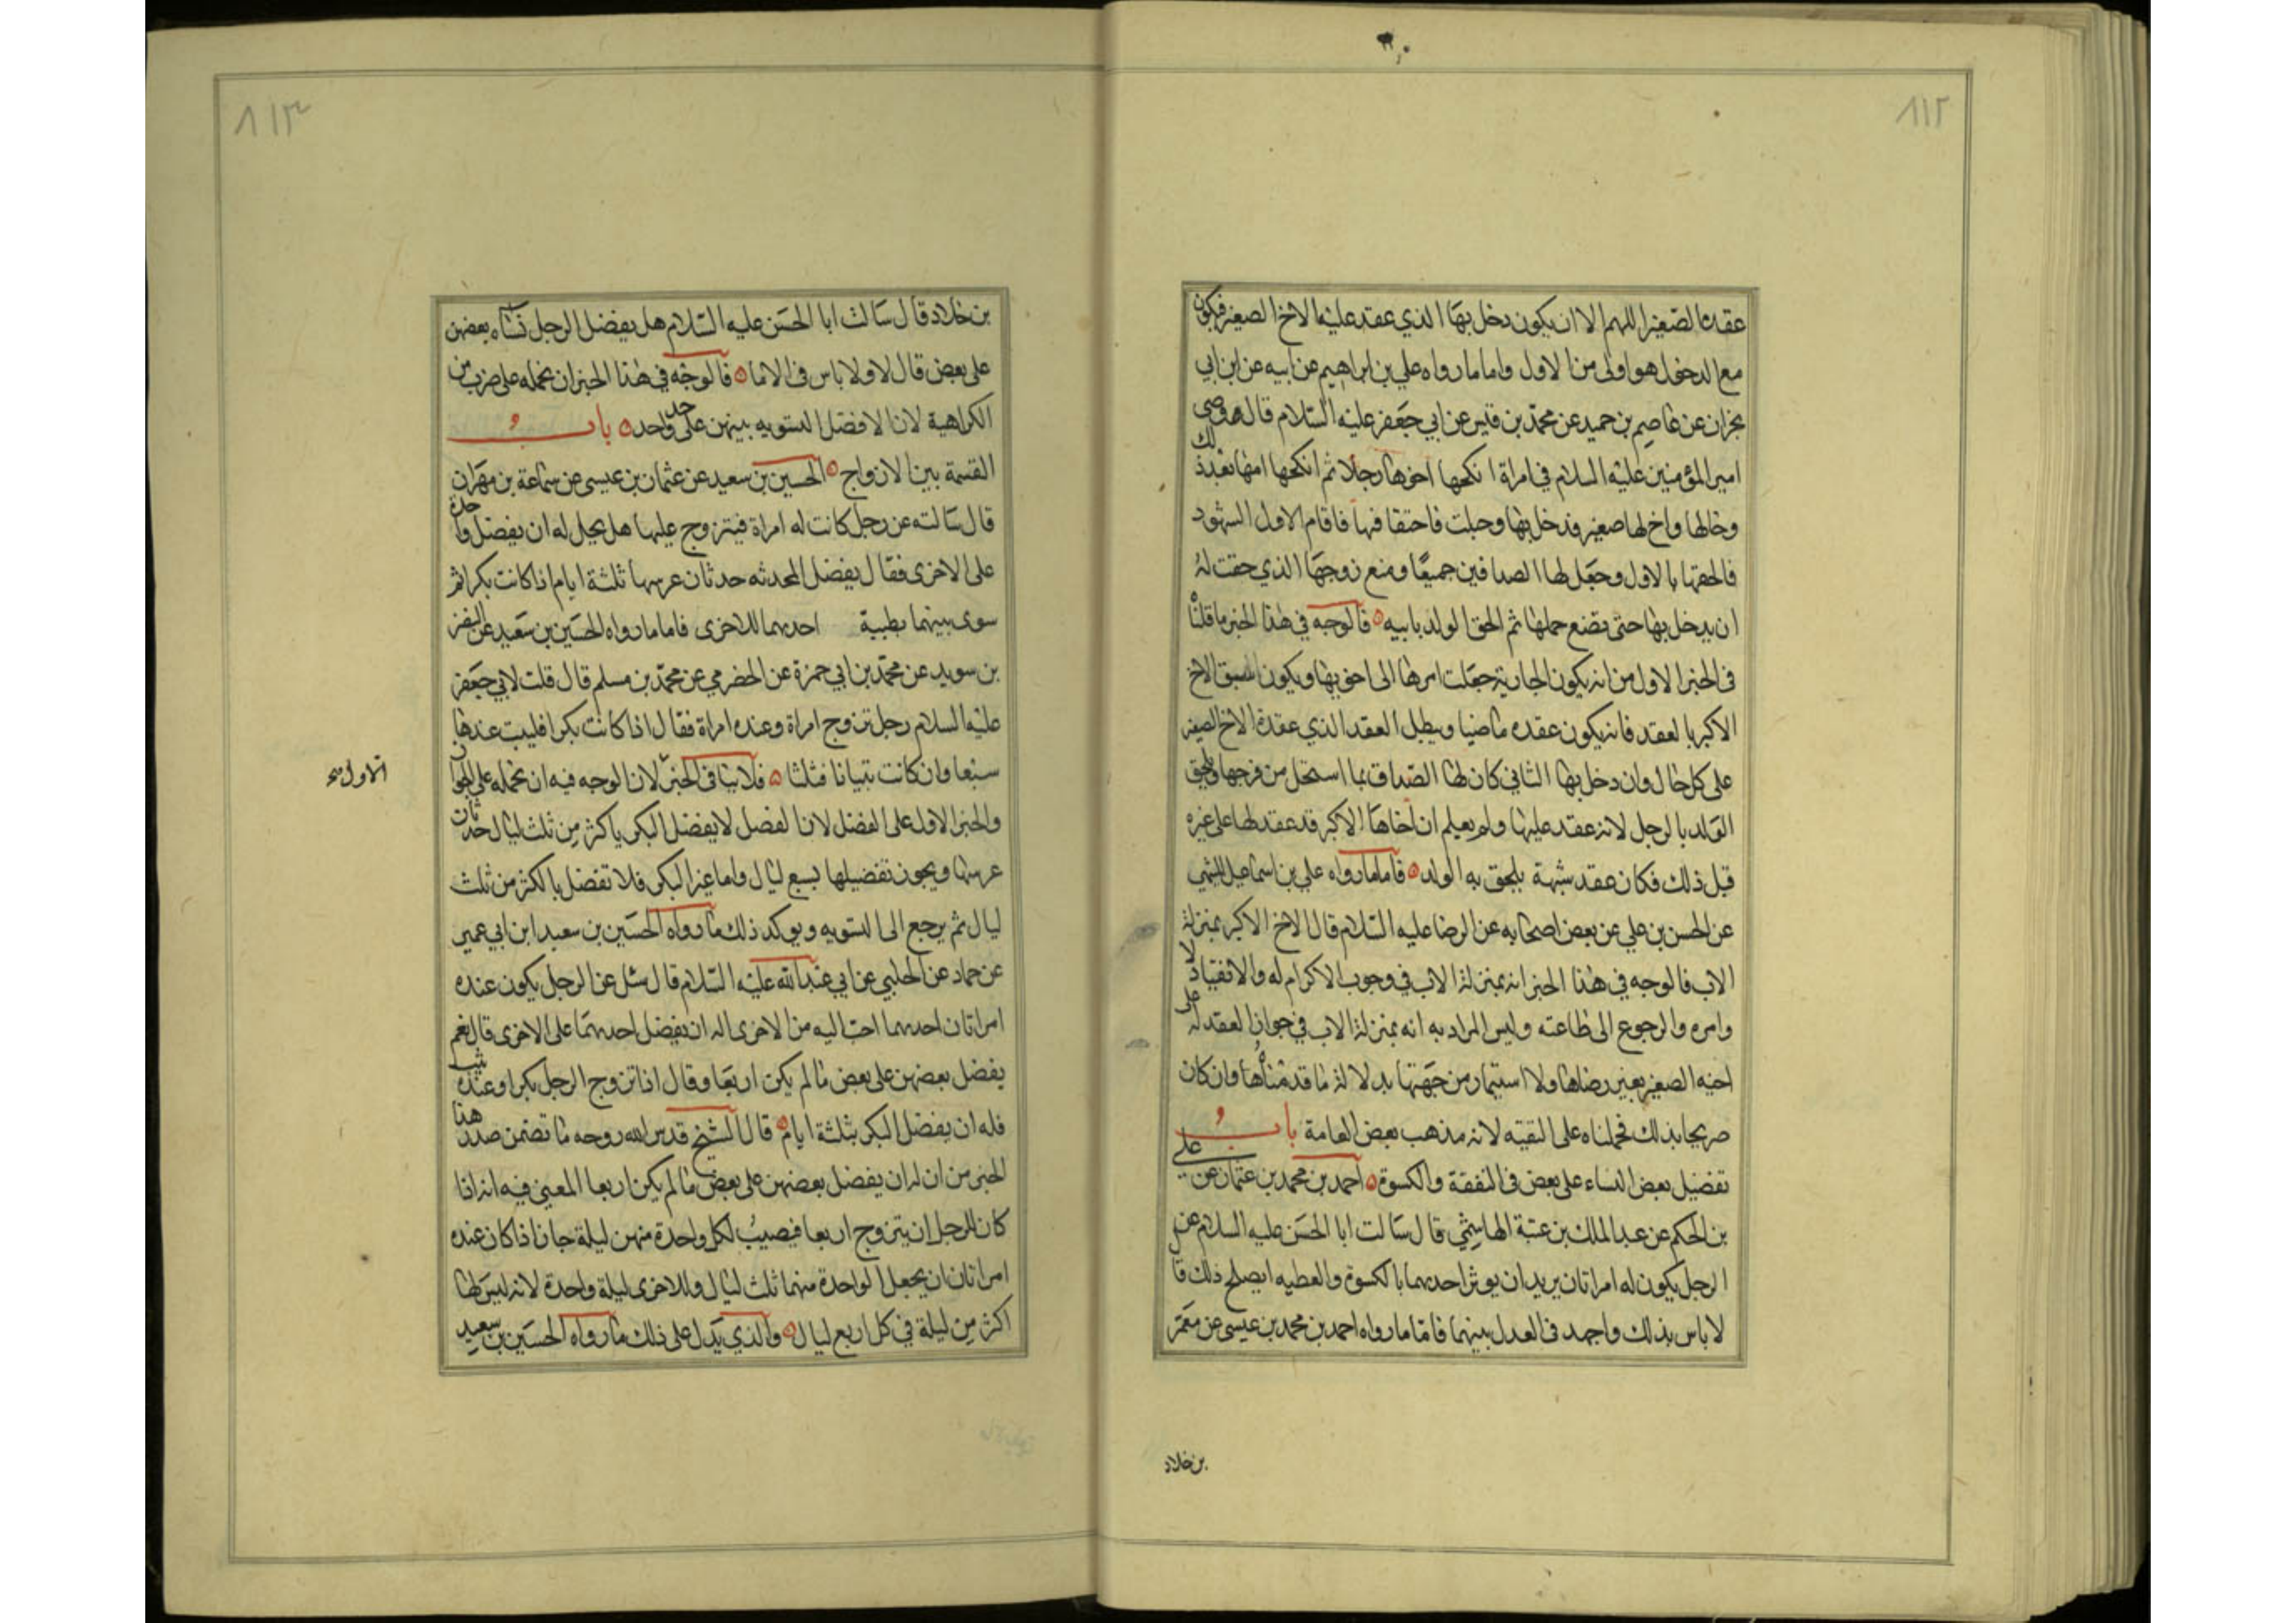 ٨١٢
عقدة الصغير اللهم الا ان يكون دخل بها الذي عقد عليها الاخ الصغير فيكون
مع الدخول هو اولى من الاول واما ما رواه علي بن ابراهيم عن ابيه عن ابن ابي
نجران عن عاصم بن حميد عن محمد بن قيس عن ابي جعفر عليه السلام قال قضى
امير المؤمنين عليه السلام في امراة انكحها اخوها رجلا ثم انكحها امها بعد ذلك
وخالها واخ لها صغير فدخل بها وحبلت فاحتقا فيها فاقام الاول الشهود
فالحقها بالاول وجعل لها الصداقين جميعًا ومنع زوجها الذي حقت له
ان يدخل بها حتى تضع حملها ثم الحق الولد بابيه فالوجه في هذا الخبر ما قلناه
في الخبر الاول من انه يكون الجارية جعلت امرها الى اخويها ويكون السبق الاخ
الاكبر بالعقد فانه يكون عقده ماضيا ويبطل العقد الذي عقده الاخ الصغير
على كل حال وان دخل بها الثاني كان لها الصداق بما استحل من فرجها ولحق
الولد بالرجل لانه عقد عليها ولم يعلم ان اخاها الاكبر قد عقد لها على غيره
قبل ذلك فكان عقد شبهة يلحق به الولد فاما ما رواه علي بن اسماعيل الميثمي
عن الحسن بن علي عن بعض اصحابه عن الرضا عليه السلام قال الاخ الاكبر بمنزلة
الاب فالوجه في هذا الخبر انه بمنزلة الاب في وجوب الاكرام له والانقياد لا
وامره والرجوع الى طاعته وليس المراد به انه بمنزلة الاب في جواز العقد له على
اخيه الصغير بغير رضاها ولا استيمار من جهتها بدلالة ما قدمناه وان كان
صريحا بذلك فحملناه على التقيه لانه مذهب بعض العامة باب
تفضيل بعض النساء على بعض في النفقة والكسوة احمد بن محمد بن عثمان عن علي
بن الحكم عن عبد الملك بن عتبة الهاشمي قال سالت ابا الحسن عليه السلام عن
الرجل يكون له امراتان يريد ان يوثر احديهما بالكسوة والعطيه ايصلح ذلك قا
لا باس بذلك واجهد في العدل بينهما فاما ما رواه احمد بن محمد بن عيسى عن معمر
بن خلاد
٨١٣
بن خلاد قال سالت ابا الحسن عليه السلام هل يفضل الرجل نساه بعضهن
على بعض قال لا ولا باس في الاما فالوجه في هذا الخبر ان نحمله على ضرب من
الكراهية لان الافضل التسويه بينهن على حد واحد باب
القسمة بين الازواج الحسين بن سعيد عن عثمان بن عيسى عن سماعة بن مهران
قال سالته عن رجل كانت له امراة فيتزوج عليها هل يحل له ان يفضل واحدة
على الاخرى فقال يفضل المحدثه حدثان عرسها ثلثة ايام اذا كانت بكرا ثم
سوى بينهما بطيبة احديهما للاخرى فاما ما رواه الحسين بن سعيد عن النضر
بن سويد عن محمد بن ابي حمزة عن الحضرمي عن محمد بن مسلم قال قلت لابي جعفر
عليه السلام رجل تزوج امراة وعنده امراة فقال اذا كانت بكرا فليبت عندها
سبعا وان كانت ثيبا فثلثا فلا ينافي الخبر لان الوجه فيه ان نحمله على الجواز
والخبر الاول على الفضل لان الفضل لا يفضل البكر باكثر من ثلث ليال حدثان
عرسها ويجوز تفضيلها بسبع ليال واما غير البكر فلا تفضل باكثر من ثلث
ليال ثم يرجع الى التسويه ويوكد ذلك ما رواه الحسين بن سعيد ابن ابي عمير
عن حماد عن الحلبي عن ابي عبد الله عليه السلام قال سئل عن الرجل يكون عنده
امراتان احديهما احب اليه من الاخرى اله ان يفضل احديهما على الاخرى قال نعم
يفضل بعضهن على بعض ما لم يكن اربعا وقال اذا تزوج الرجل بكرا وعنده ثيب
فله ان يفضل البكر بثلثة ايام قال الشيخ قدس الله روحه ما تضمن صدر هذا
الخبر من ان له ان يفضل بعضهن على بعض ما لم يكن اربعا المعنى فيه انه اذا
كان للرجل ان يتزوج اربعا فيصيب لكل واحدة منهن ليلة جاز اذا كان عنده
امراتان ان يجعل لواحدة منهما ثلث ليال وللاخرى ليلة واحدة لانه ليس لها
اكثر من ليلة في كل اربع ليال والذي يدل على ذلك ما رواه الحسين بن سعيد